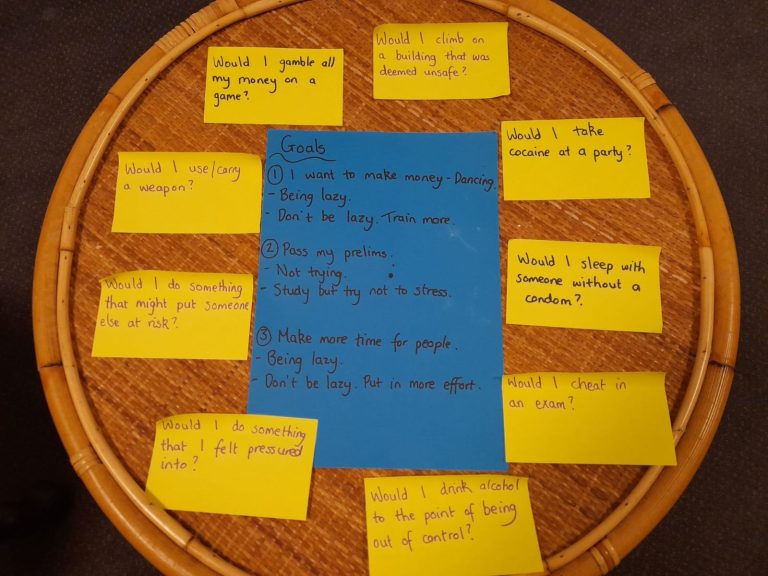 Would I gamble all
my money on a
game?
Would I climb on
a building that was
deemed unsafe?
Would I take
cocaine at a party?
Would I use/carry
a weapon?
Goals
① I want to make money - Dancing.
- Being lazy.
- Don't be lazy. Train more.
② Pass my prelims.
- Not trying.
- Study but try not to stress.
③ Make more time for people.
- Being lazy.
- Don't be lazy. Put in more effort.
Would I sleep with
someone without a
condom?
Would I do something
that might put someone
else at risk?
Would I cheat in
an exam?
Would I do something
that I felt pressured
into?
Would I drink alcohol
to the point of being
out of control?